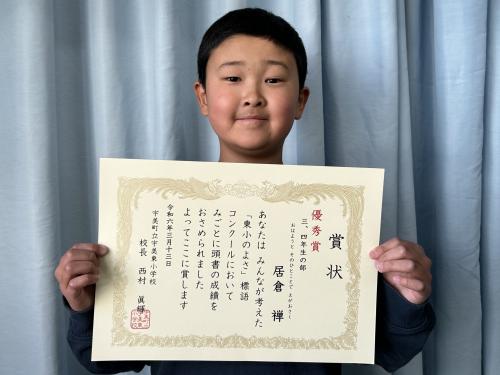 賞状
優秀賞
三、四年生の部
おはようと そのひとことで えがおさく
居倉 禅
あなたは みんなが考えた
「東小のよさ」標語
コンクールにおいて
みごとに頭書の成績を
おさめられました
よってここに賞します
令和六年三月十三日
宇美町立宇美東小学校
校長 西村